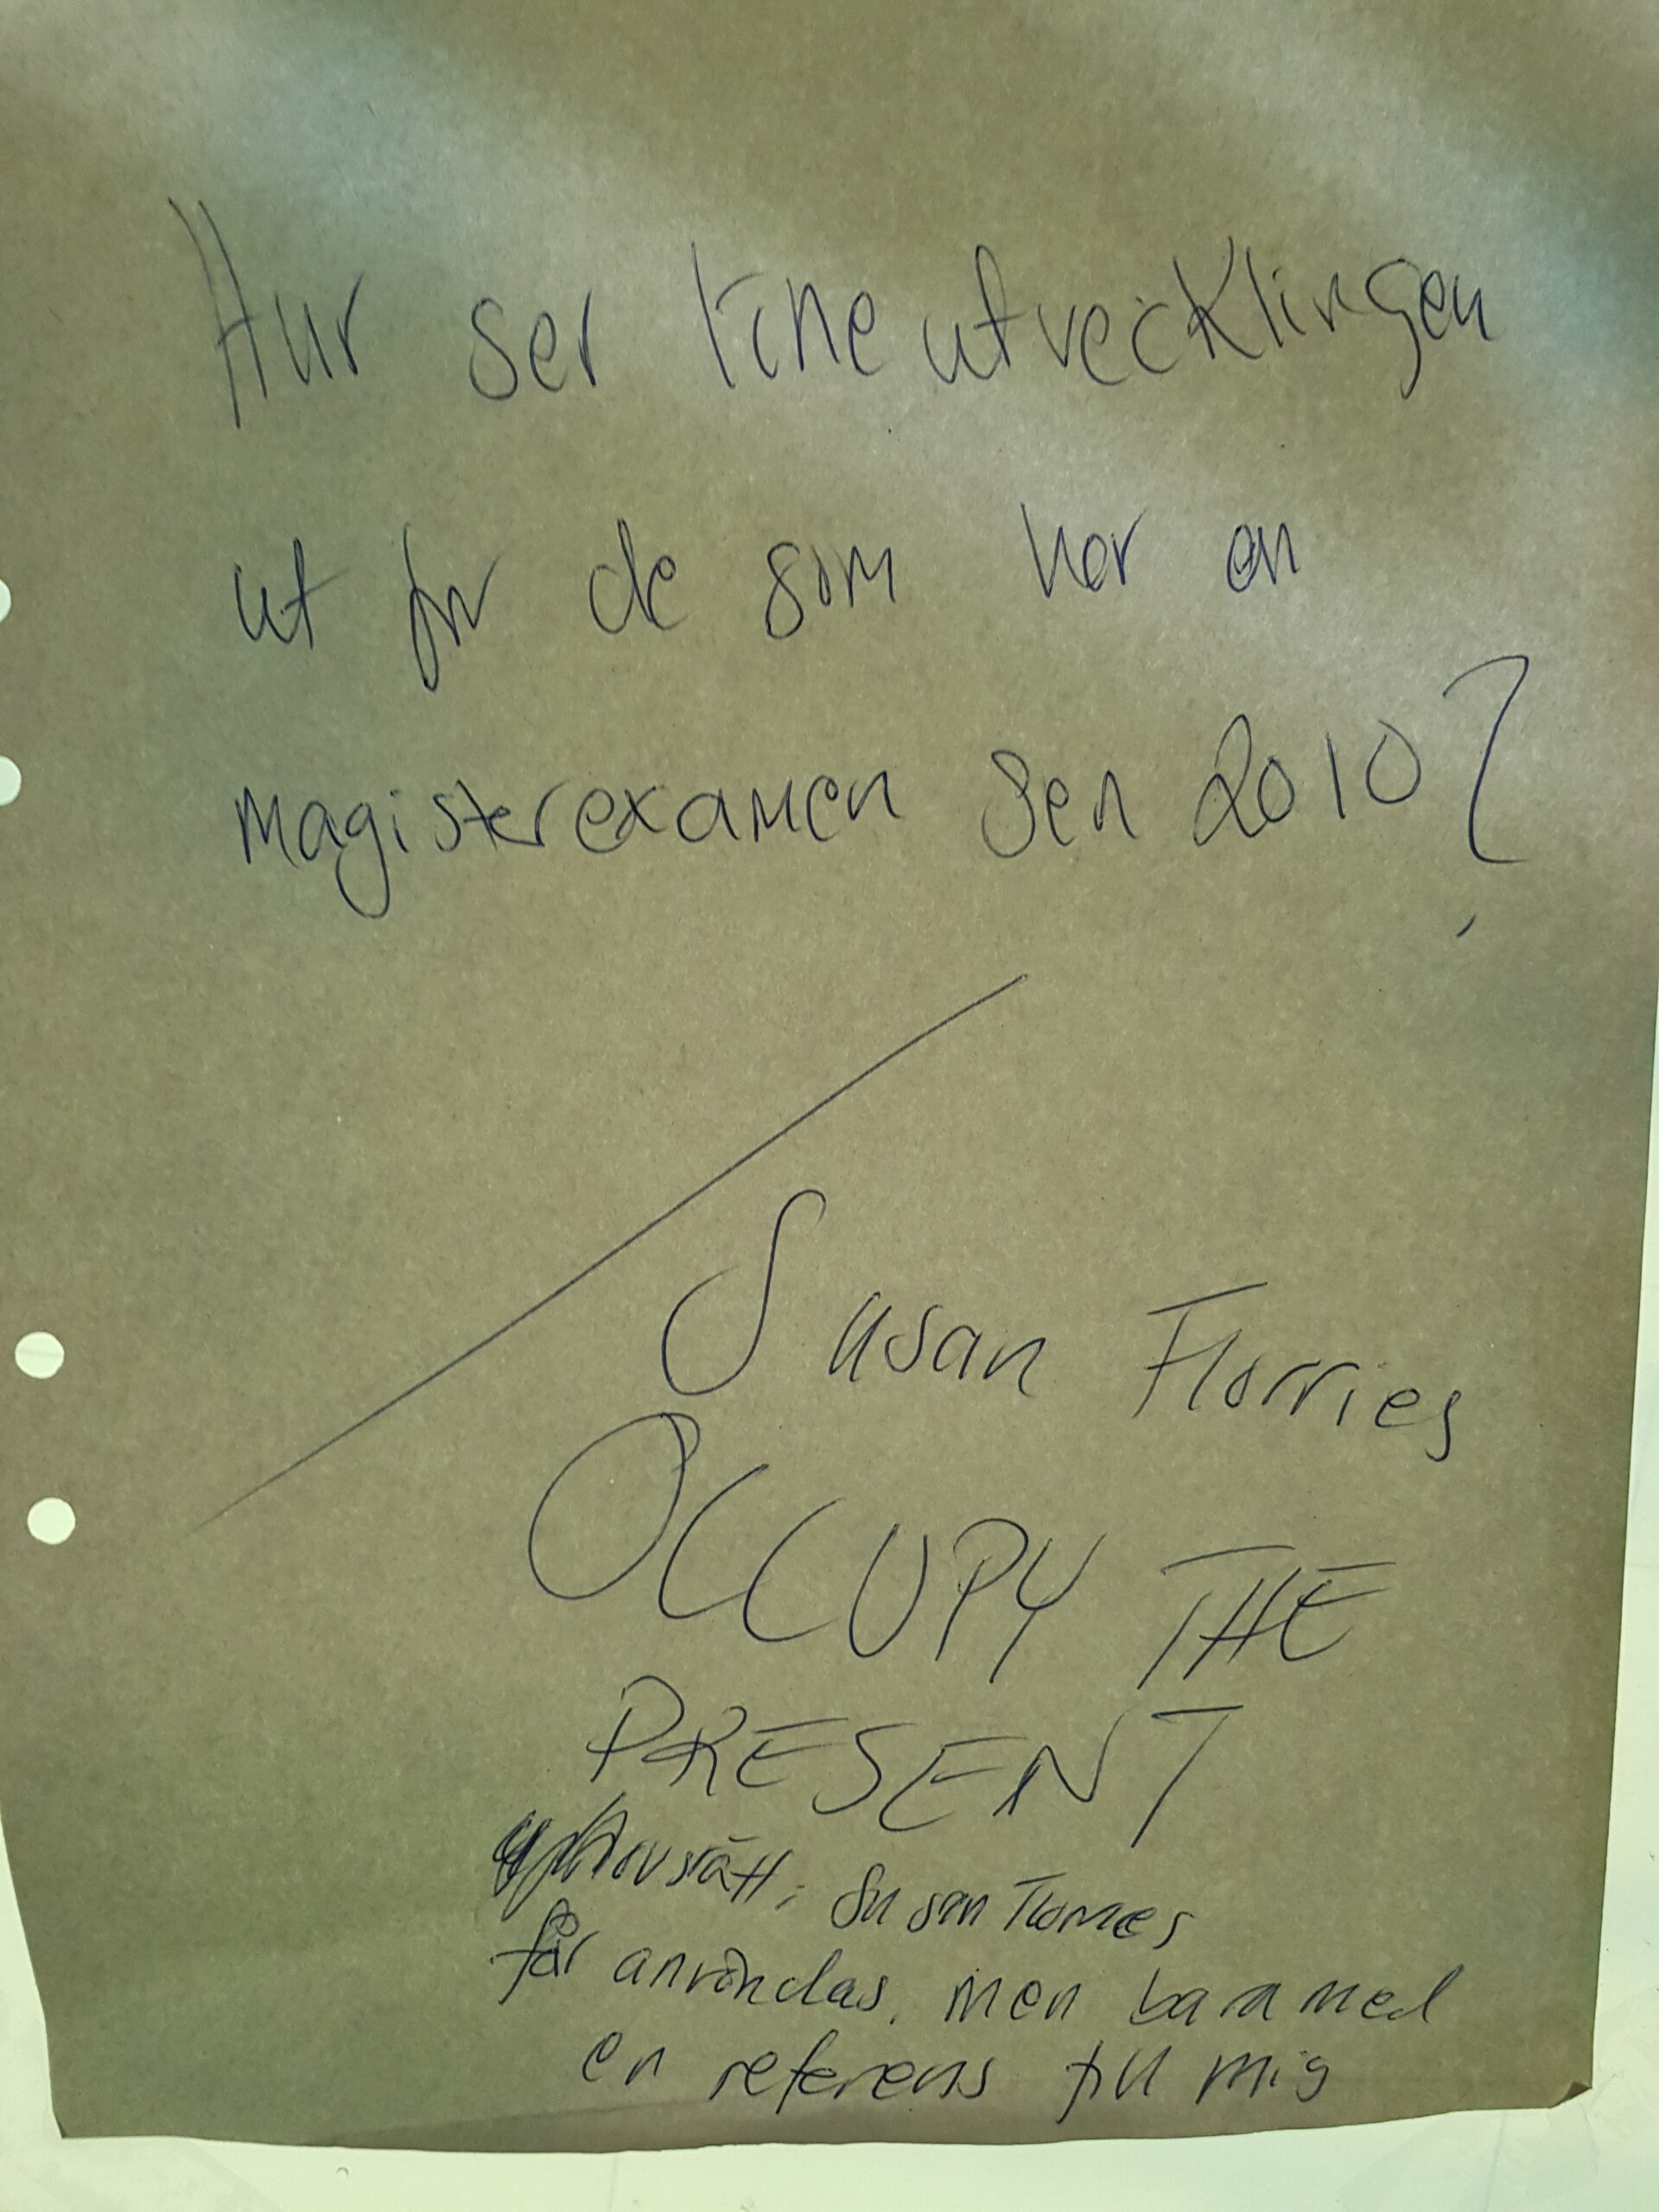 Hur ser löneutvecklingen
ut för de som har en
magisterexamen sen 2010?
Susan Florries
OCCUPY THE
PRESENT
upphovsrätt; Susan
får användas, men bara med
en referens till mig